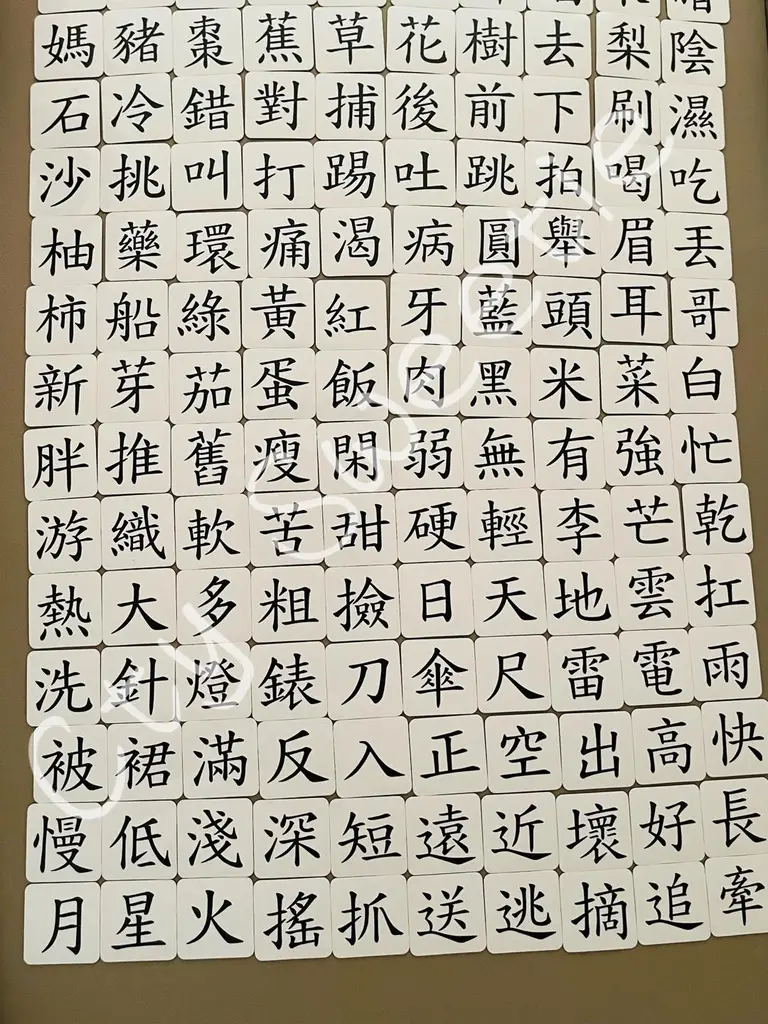 媽豬棗蕉草花樹去梨陰
石冷錯對捕後前下刷濕
沙挑叫打踢吐跳拍喝吃
柚藥環痛渴病圓舉眉丟
柿船綠黃紅牙藍頭耳哥
新芽茄蛋飯肉黑米菜白
胖推舊瘦閑弱無有強忙
游織軟苦甜硬輕李芒乾
熱大多粗撿日天地雲扛
洗針燈錶刀傘尺雷電雨
被裙滿反入正空出高快
慢低淺深短遠近壞好長
月星火搖抓送逃摘追牽
Cty Sweetie